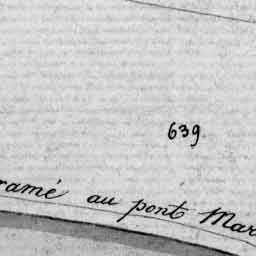 639
ramé au pont Mar